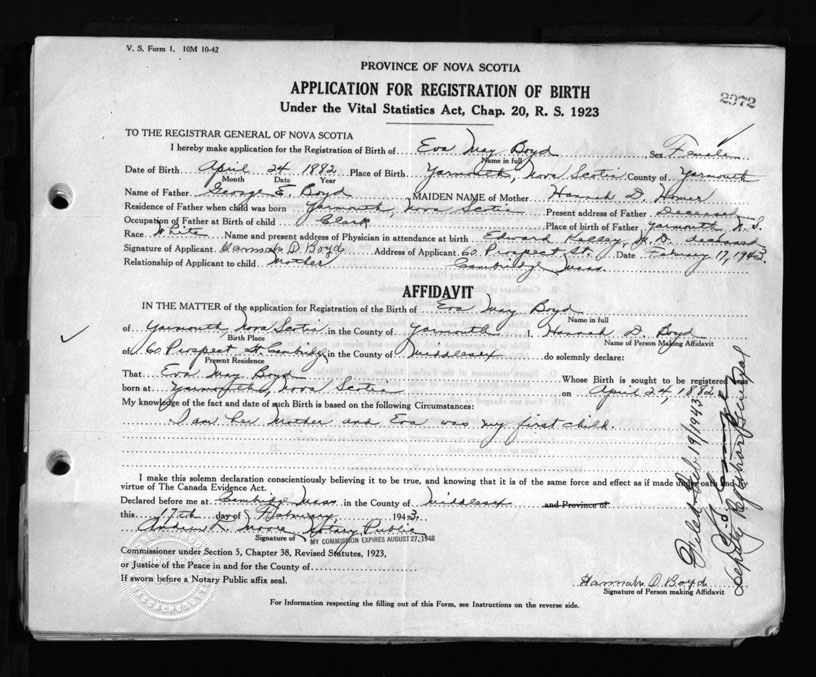 V. S. Form 1. 10M 10-42
PROVINCE OF NOVA SCOTIA
APPLICATION FOR REGISTRATION OF BIRTH
Under the Vital Statistics Act, Chap. 20, R. S. 1923
2372
TO THE REGISTRAR GENERAL OF NOVA SCOTIA
I hereby make application for the Registration of Birth of Eva May Boyd Sex Female
Name in full
Date of Birth April 24 1882 Place of Birth Yarmouth, Nova Scotia County of Yarmouth
Month Date Year
Name of Father George E. Boyd MAIDEN NAME of Mother Hannah D.
Residence of Father when child was born Yarmouth, Nova Scotia Present address of Father Deceased
Occupation of Father at Birth of child Clerk Place of birth of Father Yarmouth N. S.
Race White Name and present address of Physician in attendance at birth Edward Kelley, M. D. deceased
Signature of Applicant Hannah D. Boyd Address of Applicant 60 Prospect St. Date February 17, 1943.
Relationship of Applicant to child Mother Cambridge Mass.
AFFIDAVIT
IN THE MATTER of the application for Registration of the Birth of Eva May Boyd
Name in full
of Yarmouth, Nova Scotia in the County of Yarmouth I, Hannah D. Boyd
Birth Place Name of Person Making Affidavit
of 60 Prospect St. Cambridge in the County of Middlesex do solemnly declare:
Present Residence
That Eva May Boyd Whose Birth is sought to be registered
born at Yarmouth, Nova Scotia on April 24, 1882
My knowledge of the fact and date of such Birth is based on the following Circumstances:
I am her Mother and Eva was my first child.
I make this solemn declaration conscientiously believing it to be true, and knowing that it is of the same force and effect as if made under oath and by
virtue of The Canada Evidence Act.
Declared before me at Cambridge Mass in the County of Middlesex and Province of
this 17th day of February 1943.
Andrew L. Moore Notary Public
Signature of MY COMMISSION EXPIRES AUGUST 27, 1948
Commissioner under Section 5, Chapter 38, Revised Statutes, 1923,
or Justice of the Peace in and for the County of
If sworn before a Notary Public affix seal.
Hannah D. Boyd
Signature of Person making Affidavit
For Information respecting the filling out of this Form, see Instructions on the reverse side.
Filed Feb. 19/1943
Deputy Registrar General